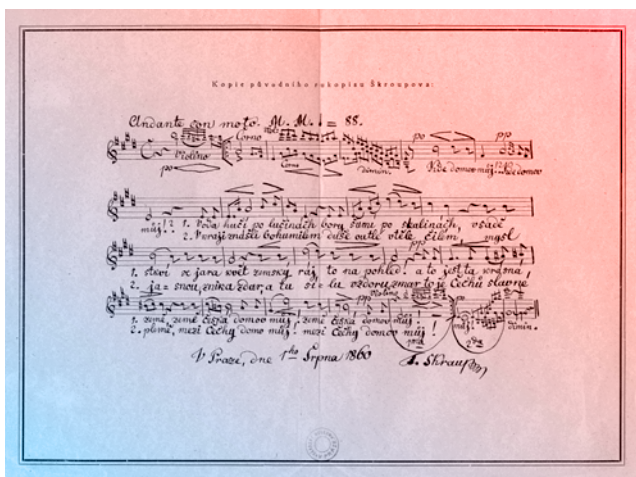 Kopie původního rukopisu Škroupova:
Andante con moto. M. M. ♩ = 88.
Corno
Violino
po
Corno
dimin.
po
pp
Kde domov můj? Kde domov
můj? 1. Voda hučí po lučinách bory šumí po skalinách, v sadě
2. V kraji znášli bohumilém duše outlé v těle čilém, mysl
1. stkví se jara květ zemský ráj to na pohled. a to jest ta krásná,
2. jasnou, znik a zdar, a tu sílu vzdoru zmar to je Čechů slavné
pp
Violino
po
1. země, země česká domov můj! země česká domov můj!
můj!
dimin.
2. plémě, mezi Čechy domov můj! mezi Čechy domov můj!
V Praze, dne 1ho Srpna 1860
F. Škroup